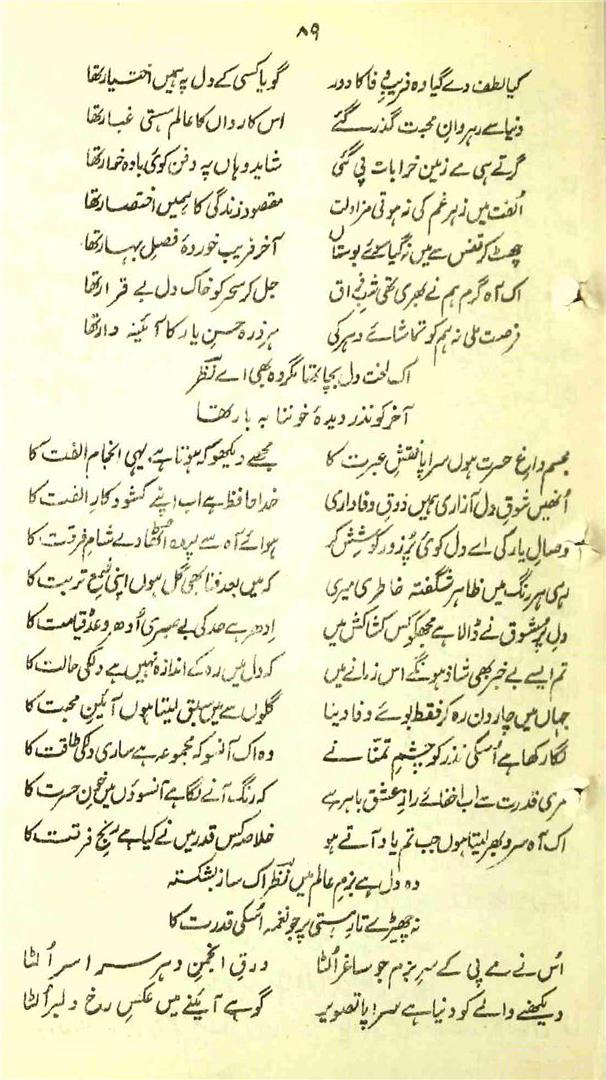 ۸۹
کیا لطف دے گیا وہ فریبِ وفا کا دور گویا کسی کے دل پہ ہمیں اختیار تھا
دنیا سے رہروانِ محبت گذر گئے اس کارواں کا عالمِ ہستی غبار تھا
گرتے ہی مے زمینِ خرابات پی گئی شاید وہاں پہ دفن کوئی بادہ خوار تھا
اُلفت میں زہرِ غم کی نہ ہوتی مزاولت مقصود زندگی کا ہمیں اختصار تھا
چھٹ کر قفس سے میں نہ گیا سوئے بوستاں آخر فریب خوردۂ فصلِ بہار تھا
اک آہِ گرم ہم نے بھری تھی شبِ فراق جل کر سحر کو خاک دلِ بے قرار تھا
فرصت ملی نہ ہم کو تماشائے دہر کی ہر ذرہ حسنِ یار کا آئینہ دار تھا
اک لخت دل بچا تھا مگر وہ بھی اے نظر
آخر کو نذر دیدۂ خوننابہ بار تھا
مجسم داغِ حسرت ہوں سراپا نقشِ عبرت کا مجھے دیکھو کہ ہوتا ہے یہی انجام الفت کا
اُنھیں شوقِ دل آزاری ہمیں ذوقِ وفاداری خدا حافظ ہے اب اپنے کشودِ کارِ الفت کا
وصالِ یار کی اے دل کوئی پُر زور کوشش کر ہوائے آہ سے پردہ اُٹھا دے شامِ فرقت کا
رہی ہر رنگ میں ظاہر شگفتہ خاطری میری کہ میں بعد فنا بھی گُل ہوں اپنی شمعِ تربت کا
دلِ پُر شوق نے ڈالا ہے مجھکو کس کشاکش میں اِدھر ہے حد کی بے صبری اُدھر وعدہ قیامت کا
تم ایسے بے خبر بھی شاذ ہونگے اس زمانے میں کہ دل میں رہ کے اندازہ نہیں ہے دلکی حالت کا
جہاں میں چار دن رہ کر فقط بوئے وفا دینا گلوں سے میں سبق لیتا ہوں آئینِ محبت کا
لگا رکھا ہے اُسکی نذر کو چشمِ تمنّا نے وہ اک آنسو کہ مجموعہ ہے ساری دلکی طاقت کا
مری قدرت سے اب اخفائے رازِ عشق باہر ہے کہ رنگ آنے لگا ہے آنسوؤں میں خونِ حسرت کا
اک آہِ سرد بھر لیتا ہوں جب تم یاد آتے ہو خلاصہ کس قدر میں نے کیا ہے رنجِ فرقت کا
وہ دل ہے بزمِ عالم میں نظر اک ساز بشکستہ
نہ چھیڑے تارِ ہستی پر جو نغمہ اُسکی قدرت کا
اُس نے مے پی کے سرِ بزم جو ساغر اُلٹا ورقِ انجمنِ دہر سراسر اُلٹا
دیکھنے والے کو دنیا ہے سراپا تصویر گو ہے آئینے میں عکسِ رخِ دلبر اُلٹا